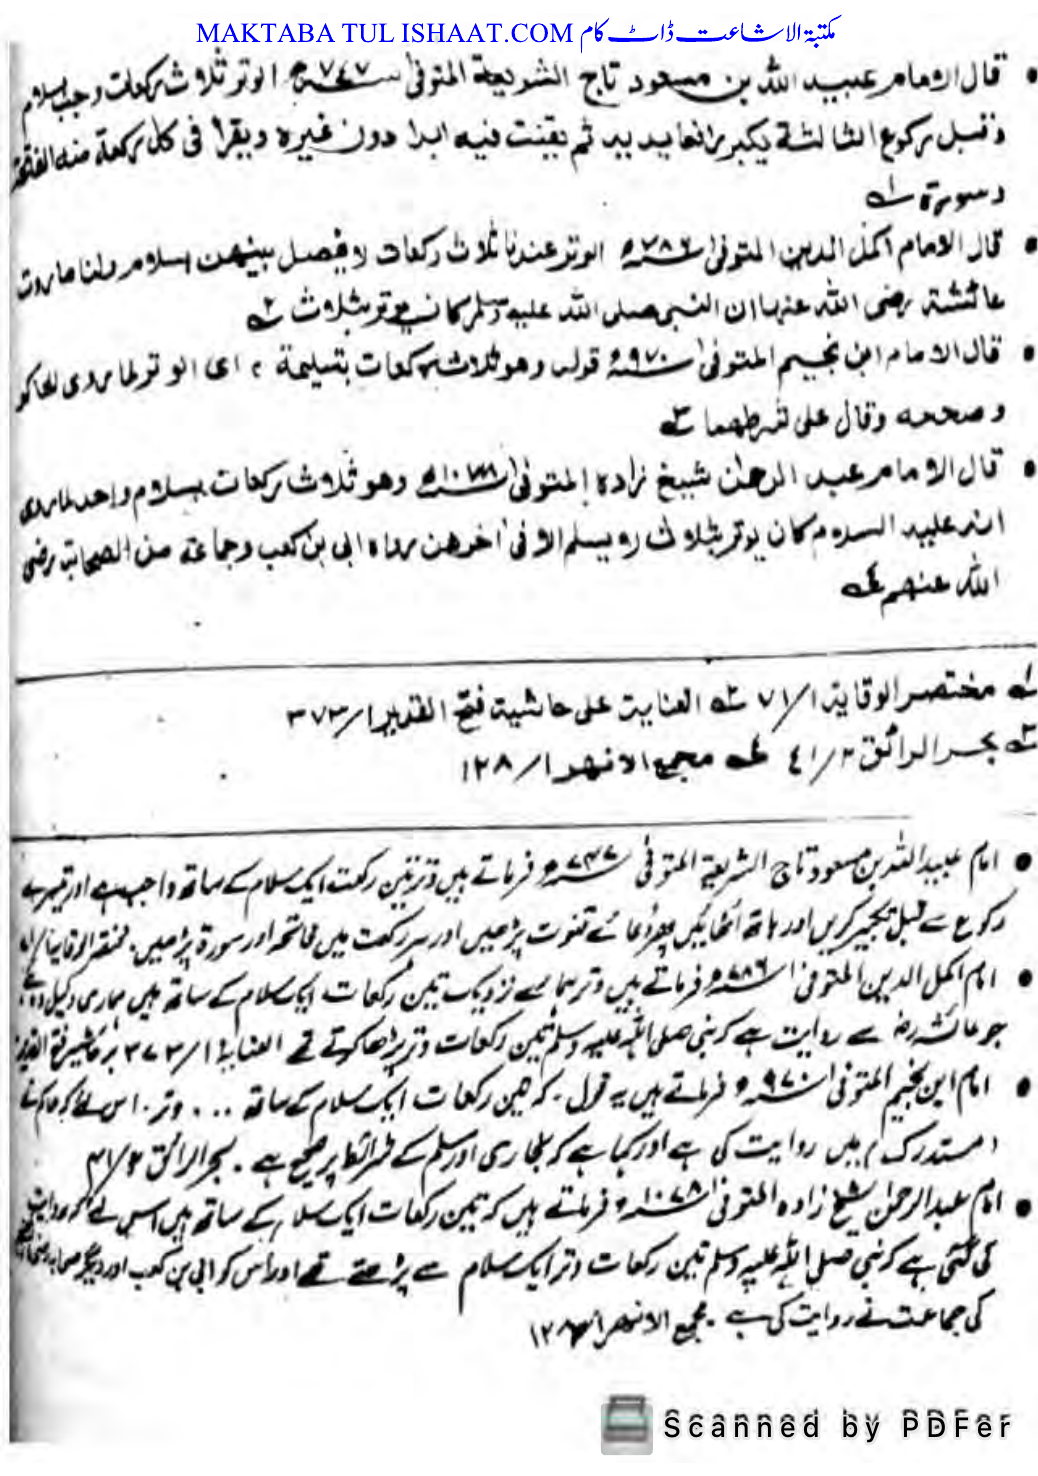 MAKTABA TUL ISHAAT.COM مکتبۃ الاشاعت ڈاٹ کام
• قال الامام عبيد الله بن مسعود تاج الشريعة المتوفیٰ ۷۴۷ھ الوتر ثلاث ركعات وجب بسلام
و قبل ركوع الثالثة يكبر رافعا يديه ثم يقنت فيه ابدا دون غيره و يقرأ فى كل ركعة منه الفاتحة
و سورة ۱
• قال الامام اكمل الدين المتوفیٰ ۷۸۶ھ الوتر عندنا ثلاث ركعات لا يفصل بينهن بسلام ولنا ما روت
عائشة رضى الله عنها ان النبى صلى الله عليه وسلم كان يوتر بثلاث ۲
• قال الامام ابن نجيم المتوفیٰ ۹۷۰ھ قوله وهو ثلاث ركعات بتسليمة ، اى الوتر لما روى الحاكم
و صححه وقال على شرطهما ۳
• قال الامام عبد الرحمٰن شيخ زاده المتوفیٰ ۱۰۷۸ھ وهو ثلاث ركعات بسلام واحد لما روى
انه عليه السلام كان يوتر بثلاث لا يسلم الا فى اخرهن رواه ابى بن كعب وجماعة من الصحابة رضى
الله عنهم ٤
۱ مختصر الوقاية ۱/۷۱ ۲ العناية على حاشية فتح القدير ۱/۳۷۳
۳ بحر الرائق ۲/٤۱ ٤ مجمع الانهر ۱/۱۲۸
• امام عبید اللہ بن مسعود تاج الشریعۃ المتوفیٰ ۷۴۷ھ فرماتے ہیں وتر تین رکعت ایک سلام کے ساتھ واجب ہے اور تیسرے
رکوع سے قبل تکبیر کریں اور ہاتھ اٹھائیں پھر دُعائے قنوت پڑھیں اور ہر رکعت میں فاتحہ اور سورۃ پڑھیں۔ مختصر الوقایۃ
• امام اکمل الدین المتوفیٰ ۷۸۶ھ فرماتے ہیں وتر ہمارے نزدیک تین رکعات ایک سلام کے ساتھ ہیں ہماری دلیل وہ ہے
جو عائشہ رضؓ سے روایت ہے کہ نبی صلی اللہ علیہ وسلم تین رکعات وتر پڑھا کرتے تھے العنایۃ ۱/۳۷۳ بر حاشیہ فتح القدیر
• امام ابن نجیم المتوفیٰ ۹۷۰ھ فرماتے ہیں یہ قول۔ کہ تین رکعات ایک سلام کے ساتھ ... وتر۔ اس لئے کہ حاکم نے
(مستدرک) میں روایت کی ہے اور کہا ہے کہ بخاری اور مسلم کے شرائط پر صحیح ہے۔ بحر الرائق ۲/۴۱
• امام عبد الرحمٰن شیخ زادہ المتوفیٰ ۱۰۷۸ھ فرماتے ہیں کہ تین رکعات ایک سلام کے ساتھ ہیں اس لئے کہ روایت
کی گئی ہے کہ نبی صلی اللہ علیہ وسلم تین رکعات وتر ایک سلام سے پڑھتے تھے اور اس کو ابی بن کعب اور دیگر صحابہ
کی جماعت نے روایت کی ہے۔ مجمع الانہر ۱/۱۲۸
Scanned by PDFer